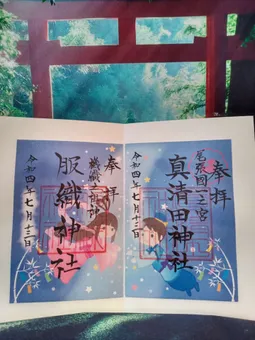 奉拝
尾張國一之宮
真清田神社
令和四年七月十三日
奉拝
服織神社
令和四年七月十三日